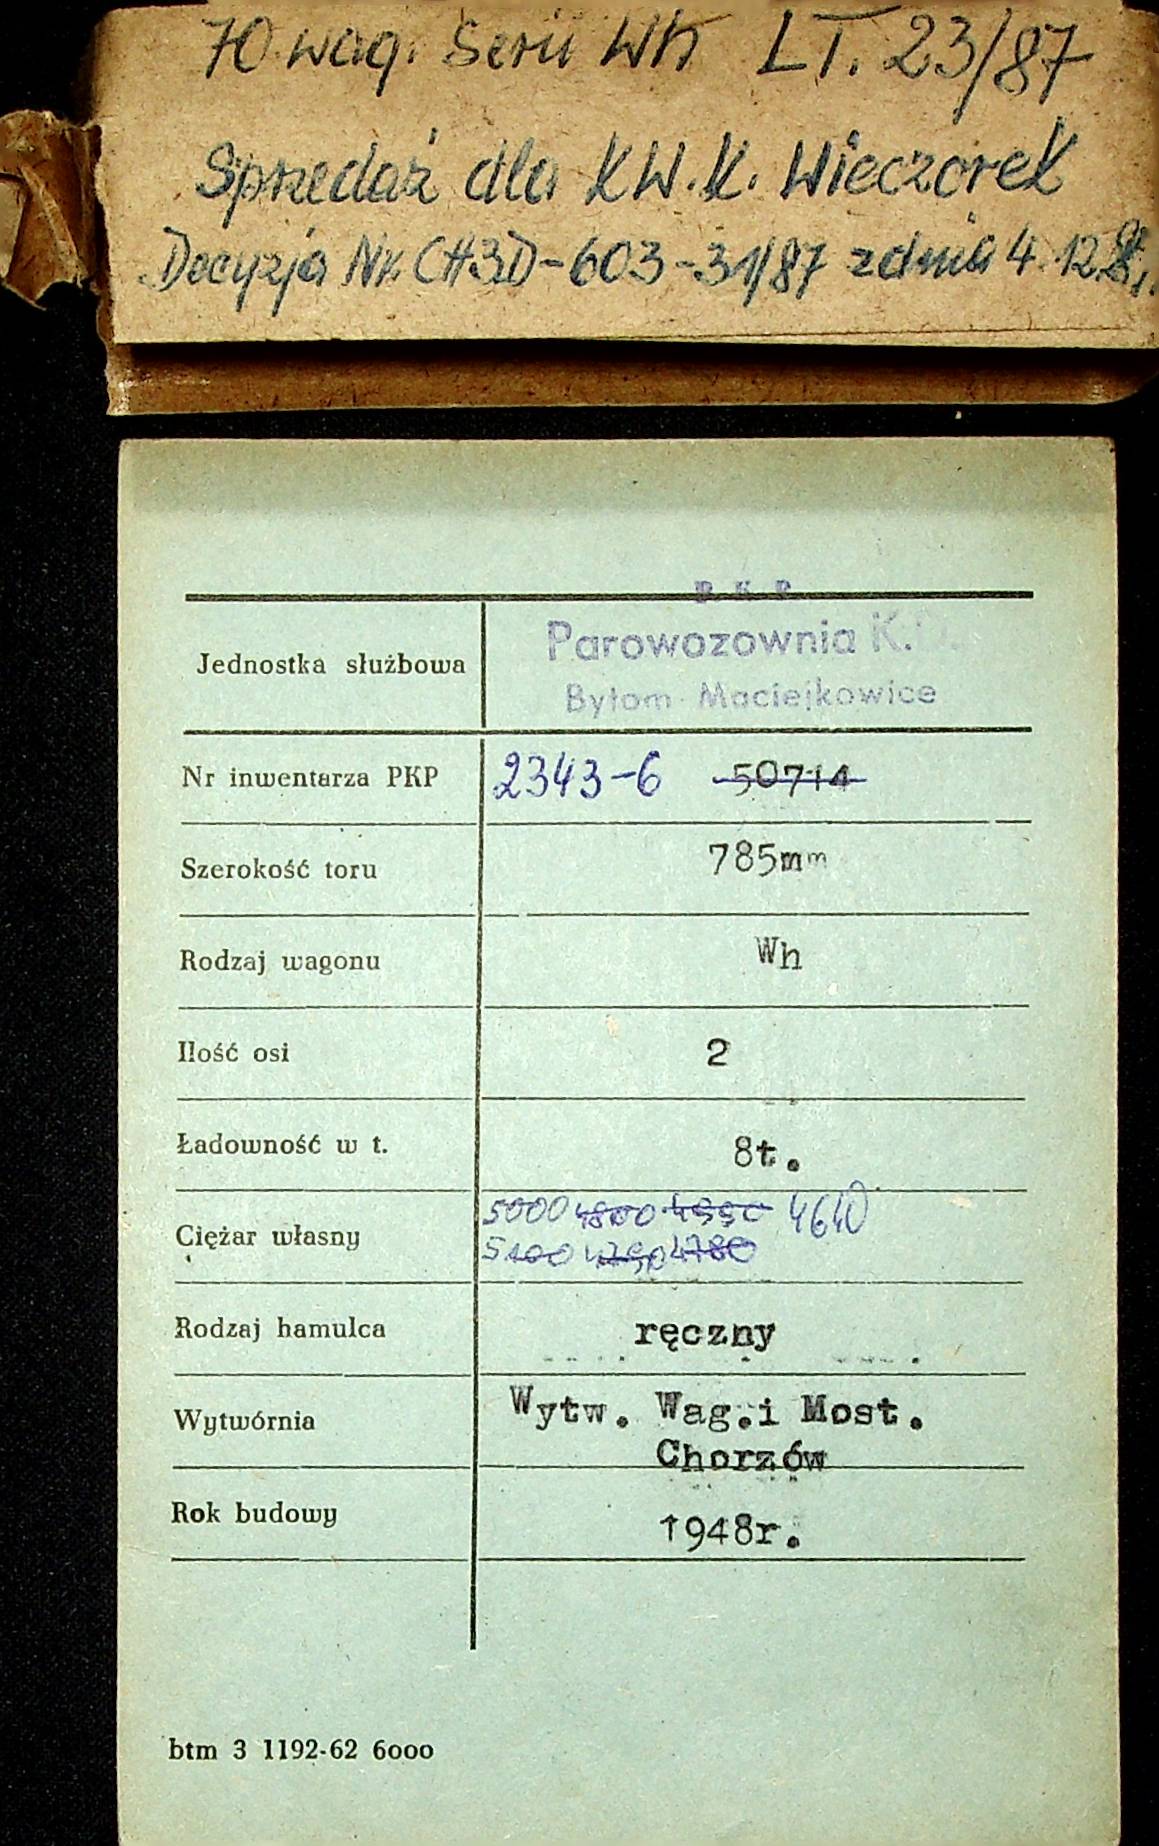 70 wag. Serii Wh LT. 23/87
Sprzedaż dla KW.K. Wieczorek
Decyzja Nr. CH3D-603-31/87 z dnia 4.12.
P. K. P.
Parowozownia K.D.
Bytom-Maciejkowice
Jednostka służbowa
Nr inwentarza PKP 2343-6 50714
Szerokość toru 785mm
Rodzaj wagonu Wh
Ilość osi 2
Ładowność w t. 8t.
5000 4800 4990 4640
Ciężar własny
5100 4790 4780
Rodzaj hamulca ręczny
Wytwórnia Wytw. Wag.i Most.
Chorzów
Rok budowy 1948r.
btm 3 1192-62 6000